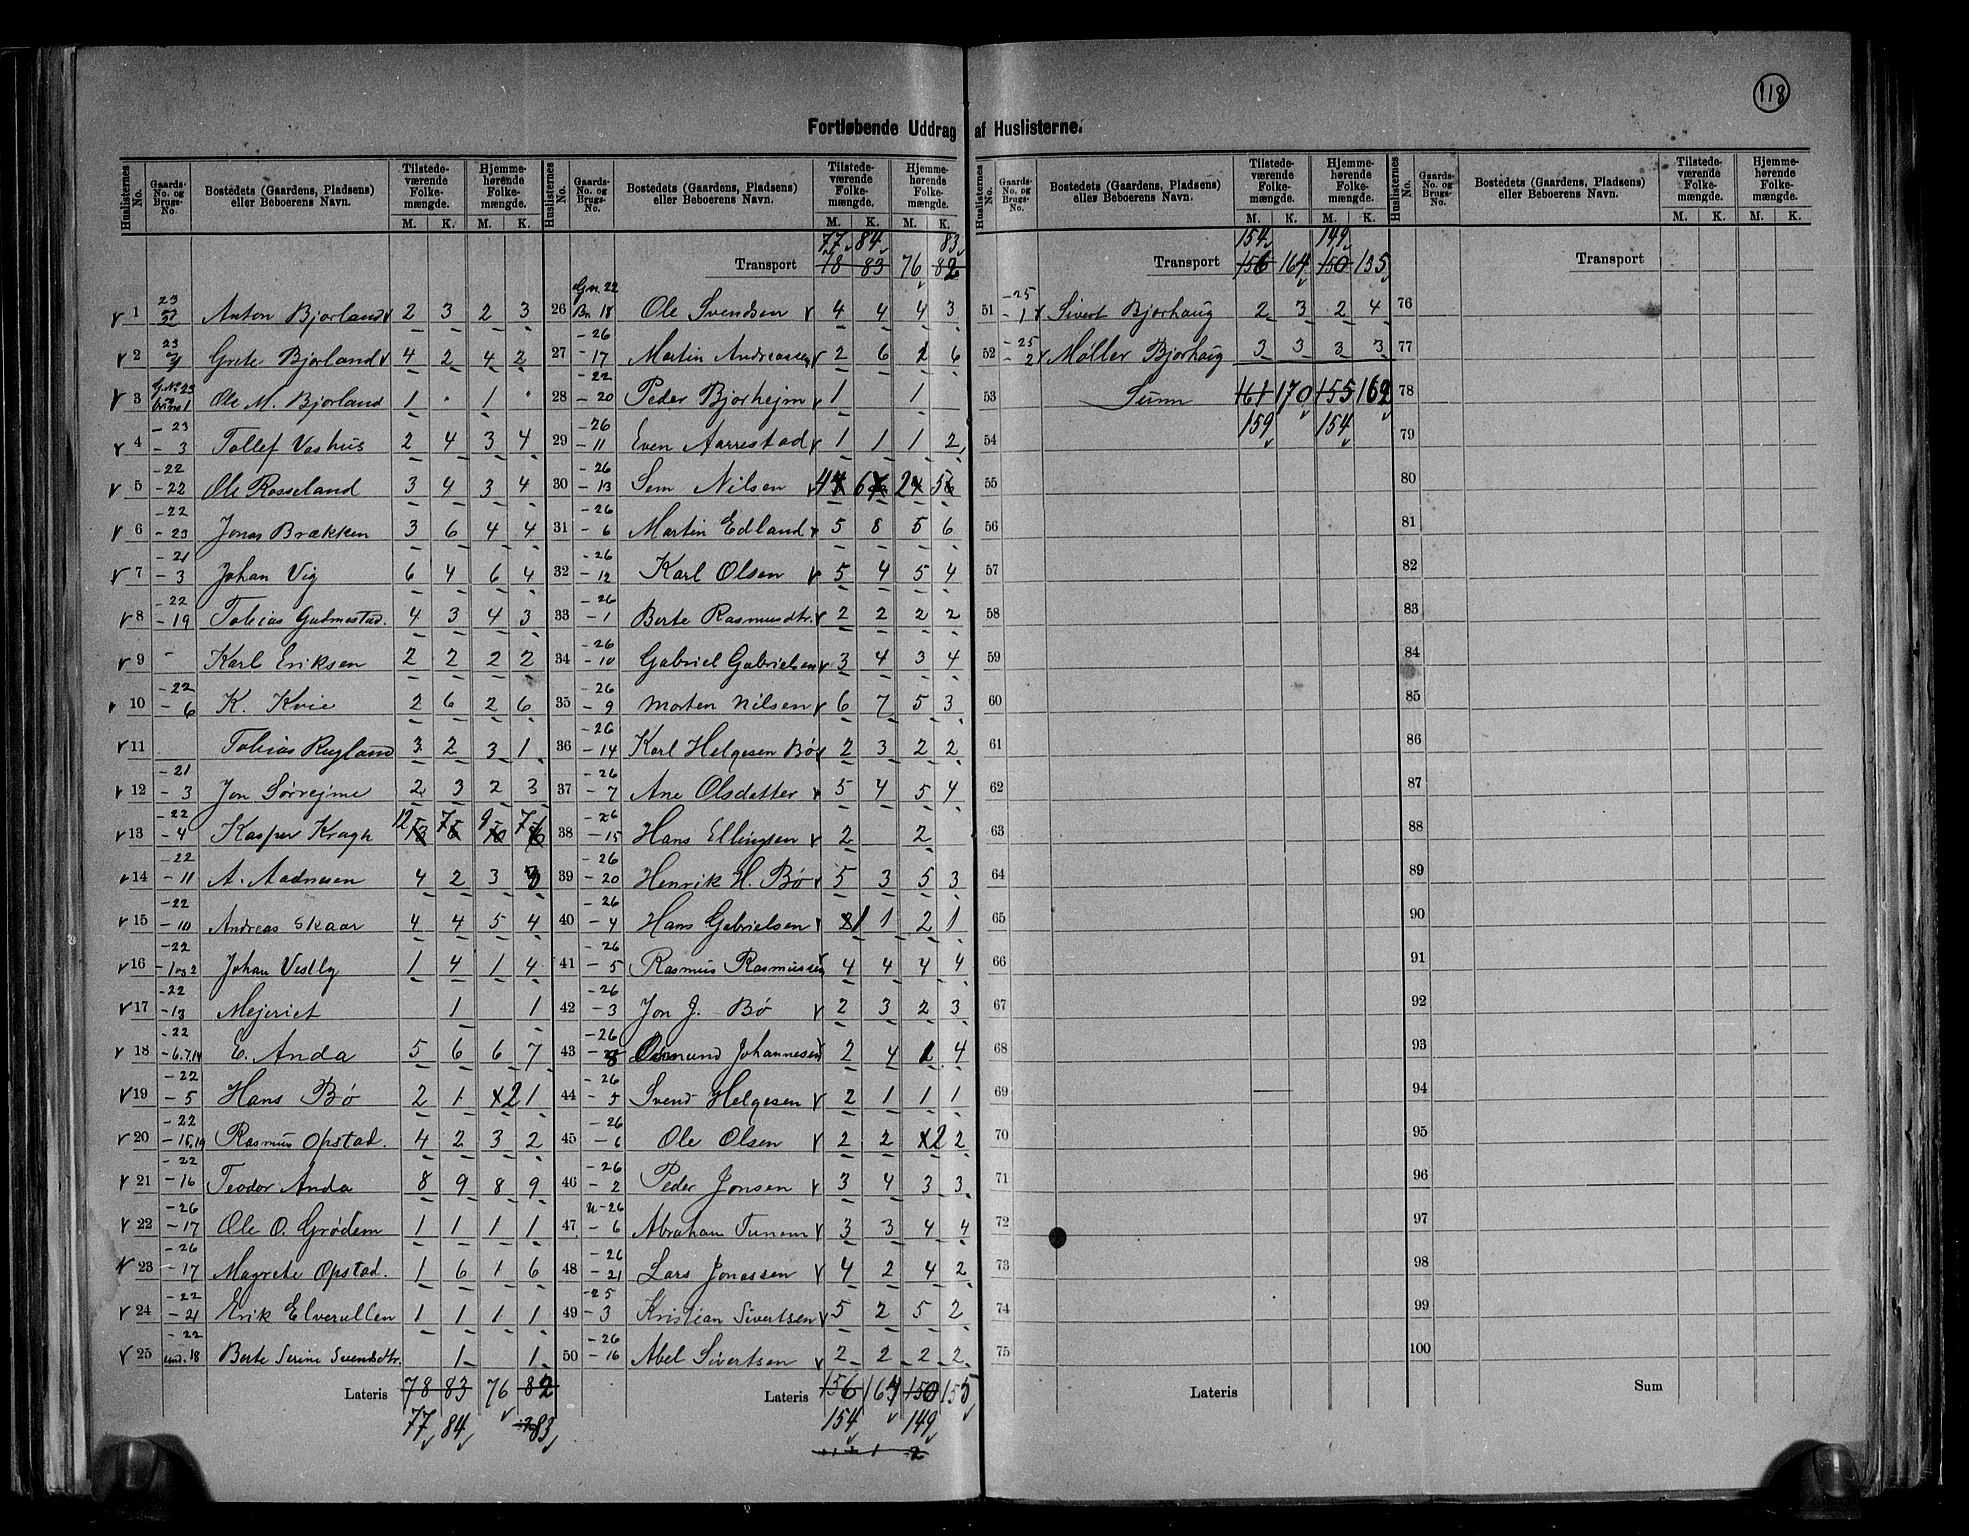 118
Fortløbende Uddrag af Huslisterne.
Huslisternes No. Gaards-No. og Brugs-No. Bostedets (Gaardens, Pladsens) eller Beboerens Navn. Tilstedeværende Folkemængde. M. K. Hjemmehørende Folkemængde. M. K.
1 23 Anton Bjorland 2 3 2 3
2 23 Grete Bjorland 4 2 4 2
3 G.No 23 Ole M. Bjorland 1 " 1 "
4 - 23 - 3 Tollef Vashus 2 4 3 4
5 - 22 - 22 Ole Rosseland 3 4 3 4
6 - 22 - 23 Jonas Brækken 3 6 4 4
7 - 21 - 3 Johan Vig 6 4 6 4
8 - 22 - 19 Tobias Gudmestad. 4 3 4 3
9 - Karl Eriksen 2 2 2 2
10 - 22 - 6 K. Kvie 2 6 2 6
11 Tobias Rugland 3 2 3 1
12 - 21 - 3 Jon Sørrejme 2 3 2 3
13 - 22 - 4 Kasper Kragh 12 7 9 7
14 - 22 - 11 A. Aadnesen 4 2 3 3
15 - 22 - 10 Andreas Skaar 4 4 5 4
16 - 22 - 1 og 2 Johan Vestly 1 4 1 4
17 - 22 - 13 Mejeriet 1 1
18 - 22 - 6.7.14 E. Anda 5 6 6 7
19 - 22 - 5 Hans Bø 2 1 2 1
20 - 22 - 15,19 Rasmus Opstad. 4 2 3 2
21 - 22 - 16 Teodor Anda 8 9 8 9
22 - 26 - 17 Ole O. Grødem 1 1 1 1
23 - 26 - 17 Magrete Opstad. 1 6 1 6
24 - 22 - 21 Erik 1 1 1 1
25 - 22 und. 18 Berte Serine Svendsdtr. 1 1
Lateris 78 83 76 82
77 84 83
77 84 83
Transport 78 83 76 82
26 Gn. 22 Bn. 18 Ole Svendsen 4 4 4 3
27 - 26 - 17 Martin Andreassen 2 6 2 6
28 - 22 - 20 Peder Bjorhejm 1 1
29 - 26 - 11 Even Aarrestad 1 1 1 2
30 - 26 - 13 Sem Nilsen 4 6 2 5
31 - 26 - 6 Martin Edland 5 8 5 6
32 - 26 - 12 Karl Olsen 5 4 5 4
33 - 26 - 1 Berte Rasmusdtr. 2 2 2 2
34 - 26 - 10 Gabriel Gabrielsen 3 4 3 4
35 - 26 - 9 Morten Nilsen 6 7 5 3
36 - 26 - 14 Karl Helgesen Bø 2 3 2 2
37 - 26 - 7 Ane Olsdatter 5 4 5 4
38 - 26 - 15 Hans Ellingsen 2 2
39 - 26 - 20 Henrik H. Bø 5 3 5 3
40 - 26 - 4 Hans Gabrielsen 1 1 2 1
41 - 26 - 5 Rasmus Rasmussen 4 4 4 4
42 - 26 - 3 Jon J. Bø 2 3 2 3
43 - 26 - 8 Osmund Johannesen 2 4 1 4
44 - 26 - 5 Svend Helgesen 2 1 1 1
45 - 26 - 6 Ole Olsen 2 2 2 2
46 - 26 - 2 Peder Jonsen 3 4 3 3
47 u - 26 - 6 Abraham Tunem 3 3 4 4
48 - 26 - 21 Lars Jonassen 4 2 4 2
49 - 25 - 3 Kristian Sivertsen 5 2 5 2
50 - 26 - 16 Abel Sivertsen 2 2 2 2
Lateris 156 164 150 155
154 149
Huslisternes No. Gaards-No. og Brugs-No. Bostedets (Gaardens, Pladsens) eller Beboerens Navn. Tilstedeværende Folkemængde. M. K. Hjemmehørende Folkemængde. M. K.
154 149
Transport 156 164 150 135
51 - 25 - 1 Sivert Bjorhaug 2 3 2 4
52 - 25 - 2 Møller Bjorhaug 3 3 3 3
53 Sum 161 170 155 162
54 159 154
55
56
57
58
59
60
61
62
63
64
65
66
67
68
69
70
71
72
73
74
75
Lateris
Transport
76
77
78
79
80
81
82
83
84
85
86
87
88
89
90
91
92
93
94
95
96
97
98
99
100
Sum